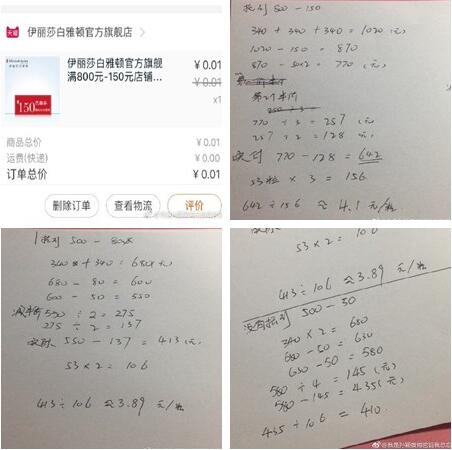 伊丽莎白雅顿官方旗舰店
伊丽莎白雅顿官方旗舰
满800元-150元店铺...
¥0.01
¥0.01
x1
150
商品总价
¥0.01
运费(快递)
¥0.00
订单总价
¥0.01
删除订单
查看物流
评价
抢到 800-150
340+340+340=1020(元)
1020-150=870
870-50×2=770(元)
第2个半价
770÷3=257(元)
257÷2=128元
实付 770-128=642
53粒×3=156
642÷156≈4.1元/粒
抢到 500-80
340+340=680(元)
680-80=600
600-50=550
550÷2=275
275÷2=137
550-137=413(元)
53×2=106
413÷106≈3.89 元/粒
53×2=106
413÷106≈3.89 元/粒
没有抢到 500-50
340×2=680
680-50=630
630-50=580
580÷4=145(元)
580-145=435(元)
435÷106=410